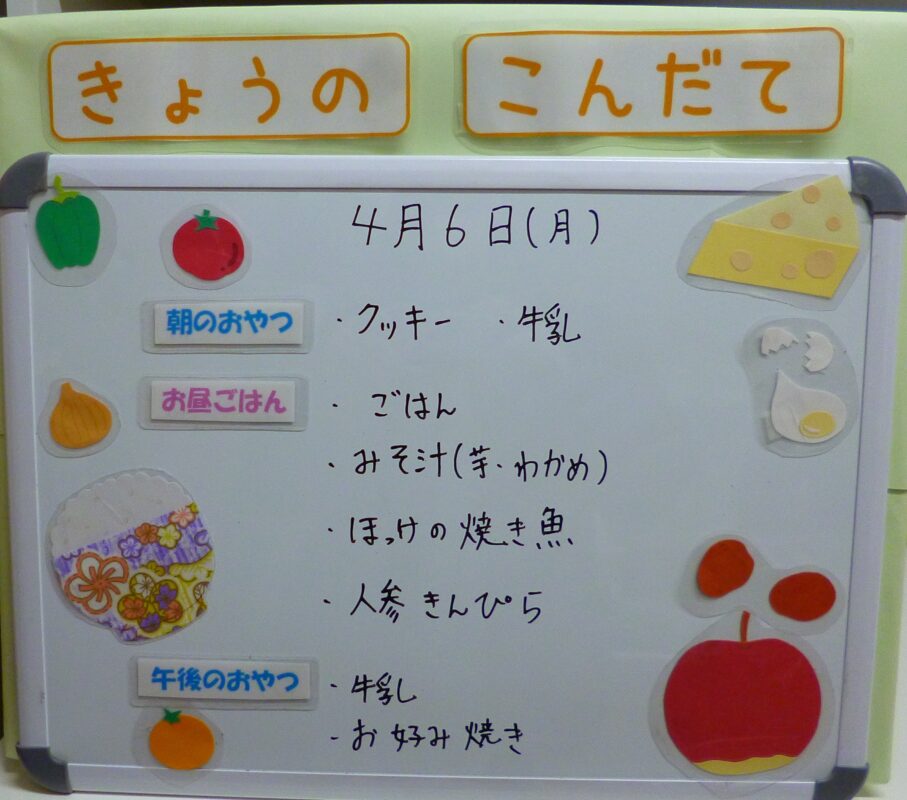 きょうの こんだて
4月6日(月)
朝のおやつ ・クッキー ・牛乳
お昼ごはん ・ごはん
・みそ汁(芋・わかめ)
・ほっけの焼き魚
・人参きんぴら
午後のおやつ ・牛乳
・お好み焼き